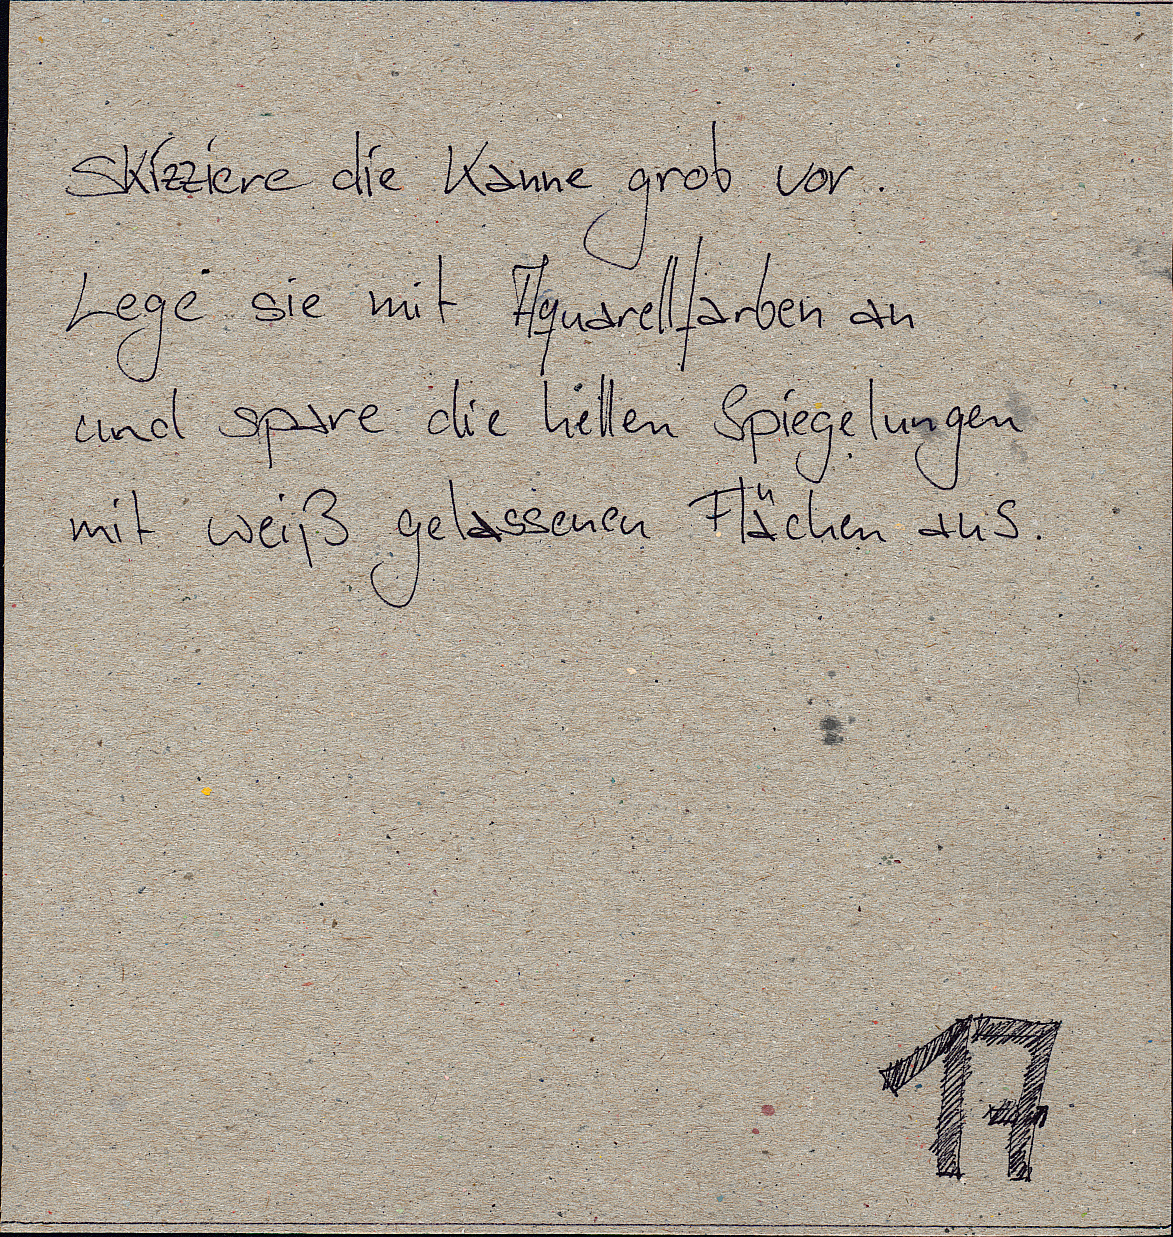 Skizziere die Kanne grob vor.
Lege sie mit Aquarellfarben an
und spare die hellen Spiegelungen
mit weiß gelassenen Flächen aus.
17